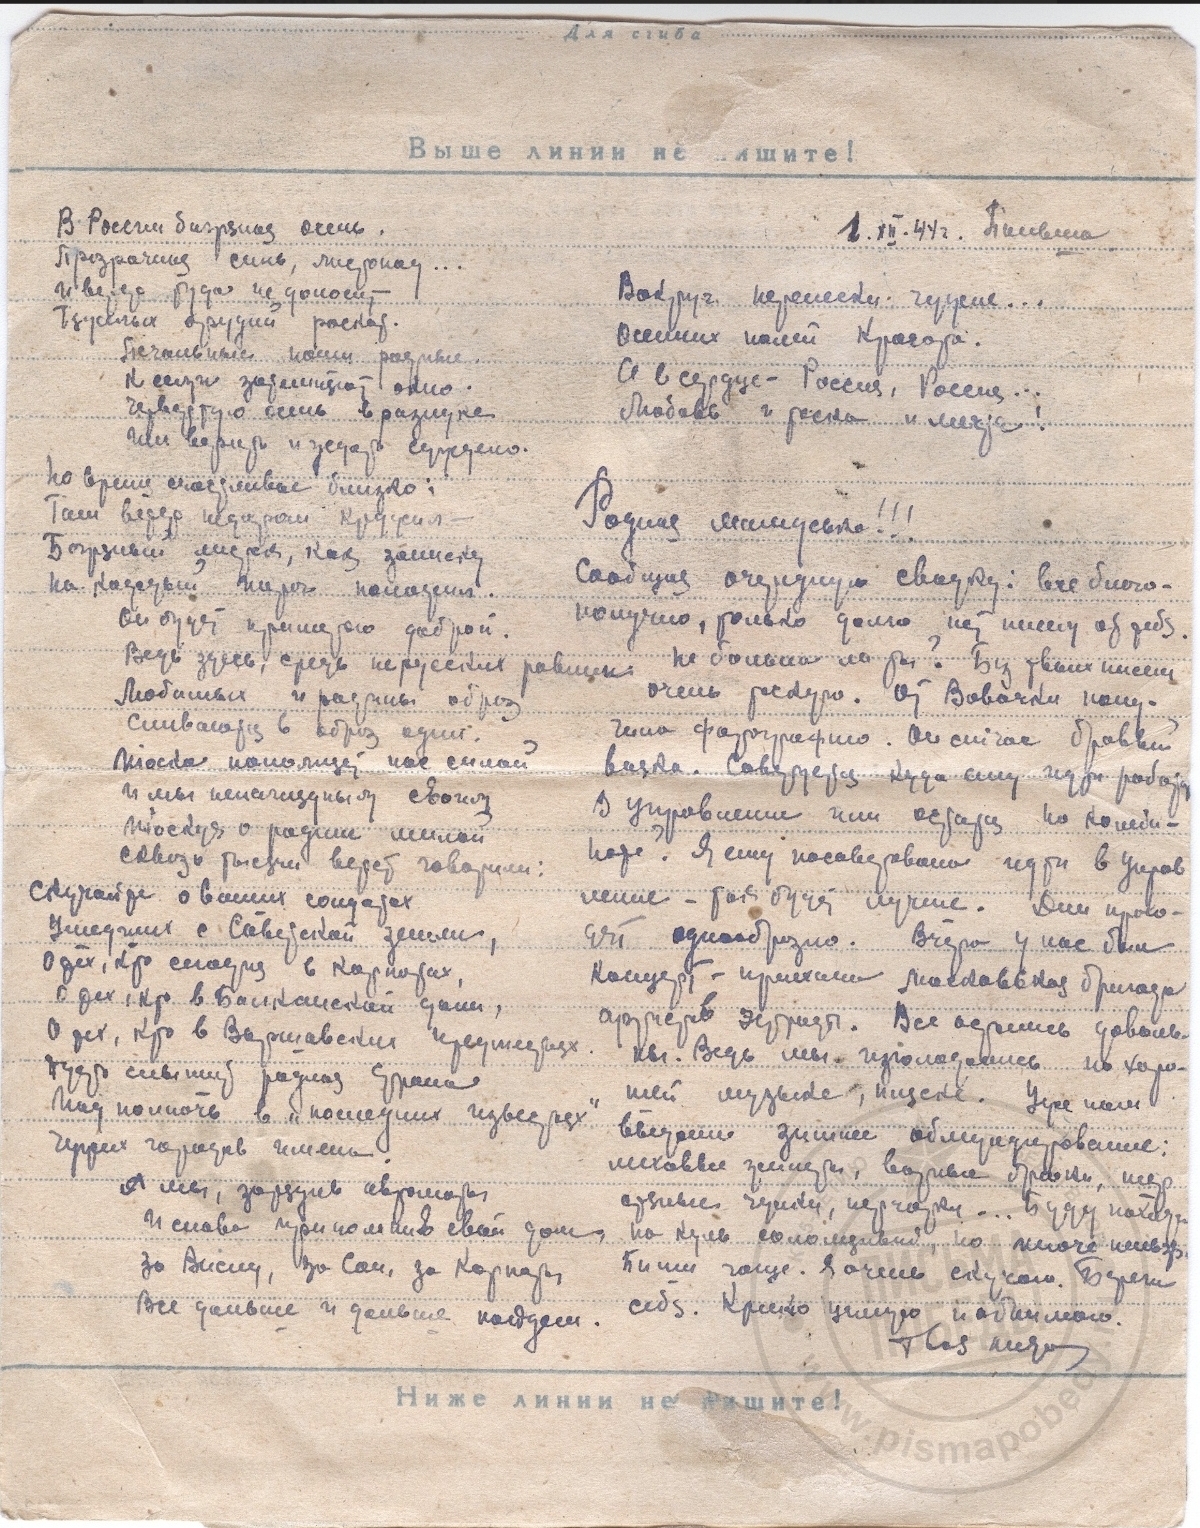 Для сгиба
Выше линии не пишите!
В России багряная осень.
Прозрачная синь, листопад...
И ветер сюда не доносит
Тяжелых орудий раскат.
Печальные наши родные.
К семи затемняют окно.
Четвертую осень в разлуке
Им верить и ждать суждено.
Но время счастливое близко:
Там ветер недаром кружил —
Багряный листок, как записку
На каждый порог положил.
Он будет приметою доброй.
Ведь здесь, средь нерусских равнин
Любимых и родины образ
Сливаются в образ один.
Москва наполняет нас силой
И мы ненаглядным своим
Тоскуя о родине милой
Сквозь тысячи верст говорим:
Скучайте о ваших солдатах
Ушедших с Советской земли,
О тех, кто сегодня в Карпатах,
О тех, кто в Балканской дали,
О тех, кто в Варшавских предместьях.
Пусть слышит родная страна
Под полночь в "последних известьях"
Чужих городов имена.
А мы, зарядив автоматы
И снова припомнив свой дом,
За Вислу, за Сан, за Карпаты
Все дальше и дальше пойдем.
1.XII.44г. Польша
Вокруг перелески чужие...
Осенних полей красота.
А в сердце — Россия, Россия...
Любовь и тоска и мечта!
Родная мамусенька!!!
Сообщаю очередную сводку: все благо-
получно, только долго нет писем от тебя.
Не больна ли ты? Без твоих писем
очень тоскую. От Вовочки полу-
чила фотографию. Он сейчас бравый
вояка. Советуется куда ему идти работать
В управление или остаться на
Я ему посоветовала идти в Управ
ление — там будет лучше. Дни прохо-
дят однообразно. Вчера у нас был
Концерт — приехала Московская бригада
артистов эстрады. Все остались доволь-
ны. Ведь мы изголодались по хоро-
шей музыке, песне. Уже нам
выдали зимнее обмундирование:
меховые жилеты, ватные брюки, шер
стяные чулки, перчатки... Буду похожа
на куль соломенный, но иначе нельзя.
Пиши чаще. Я очень скучаю. Береги
себя. Крепко целую и обнимаю.
Твоя
Ниже линии не пишите!
www.pismapobedy